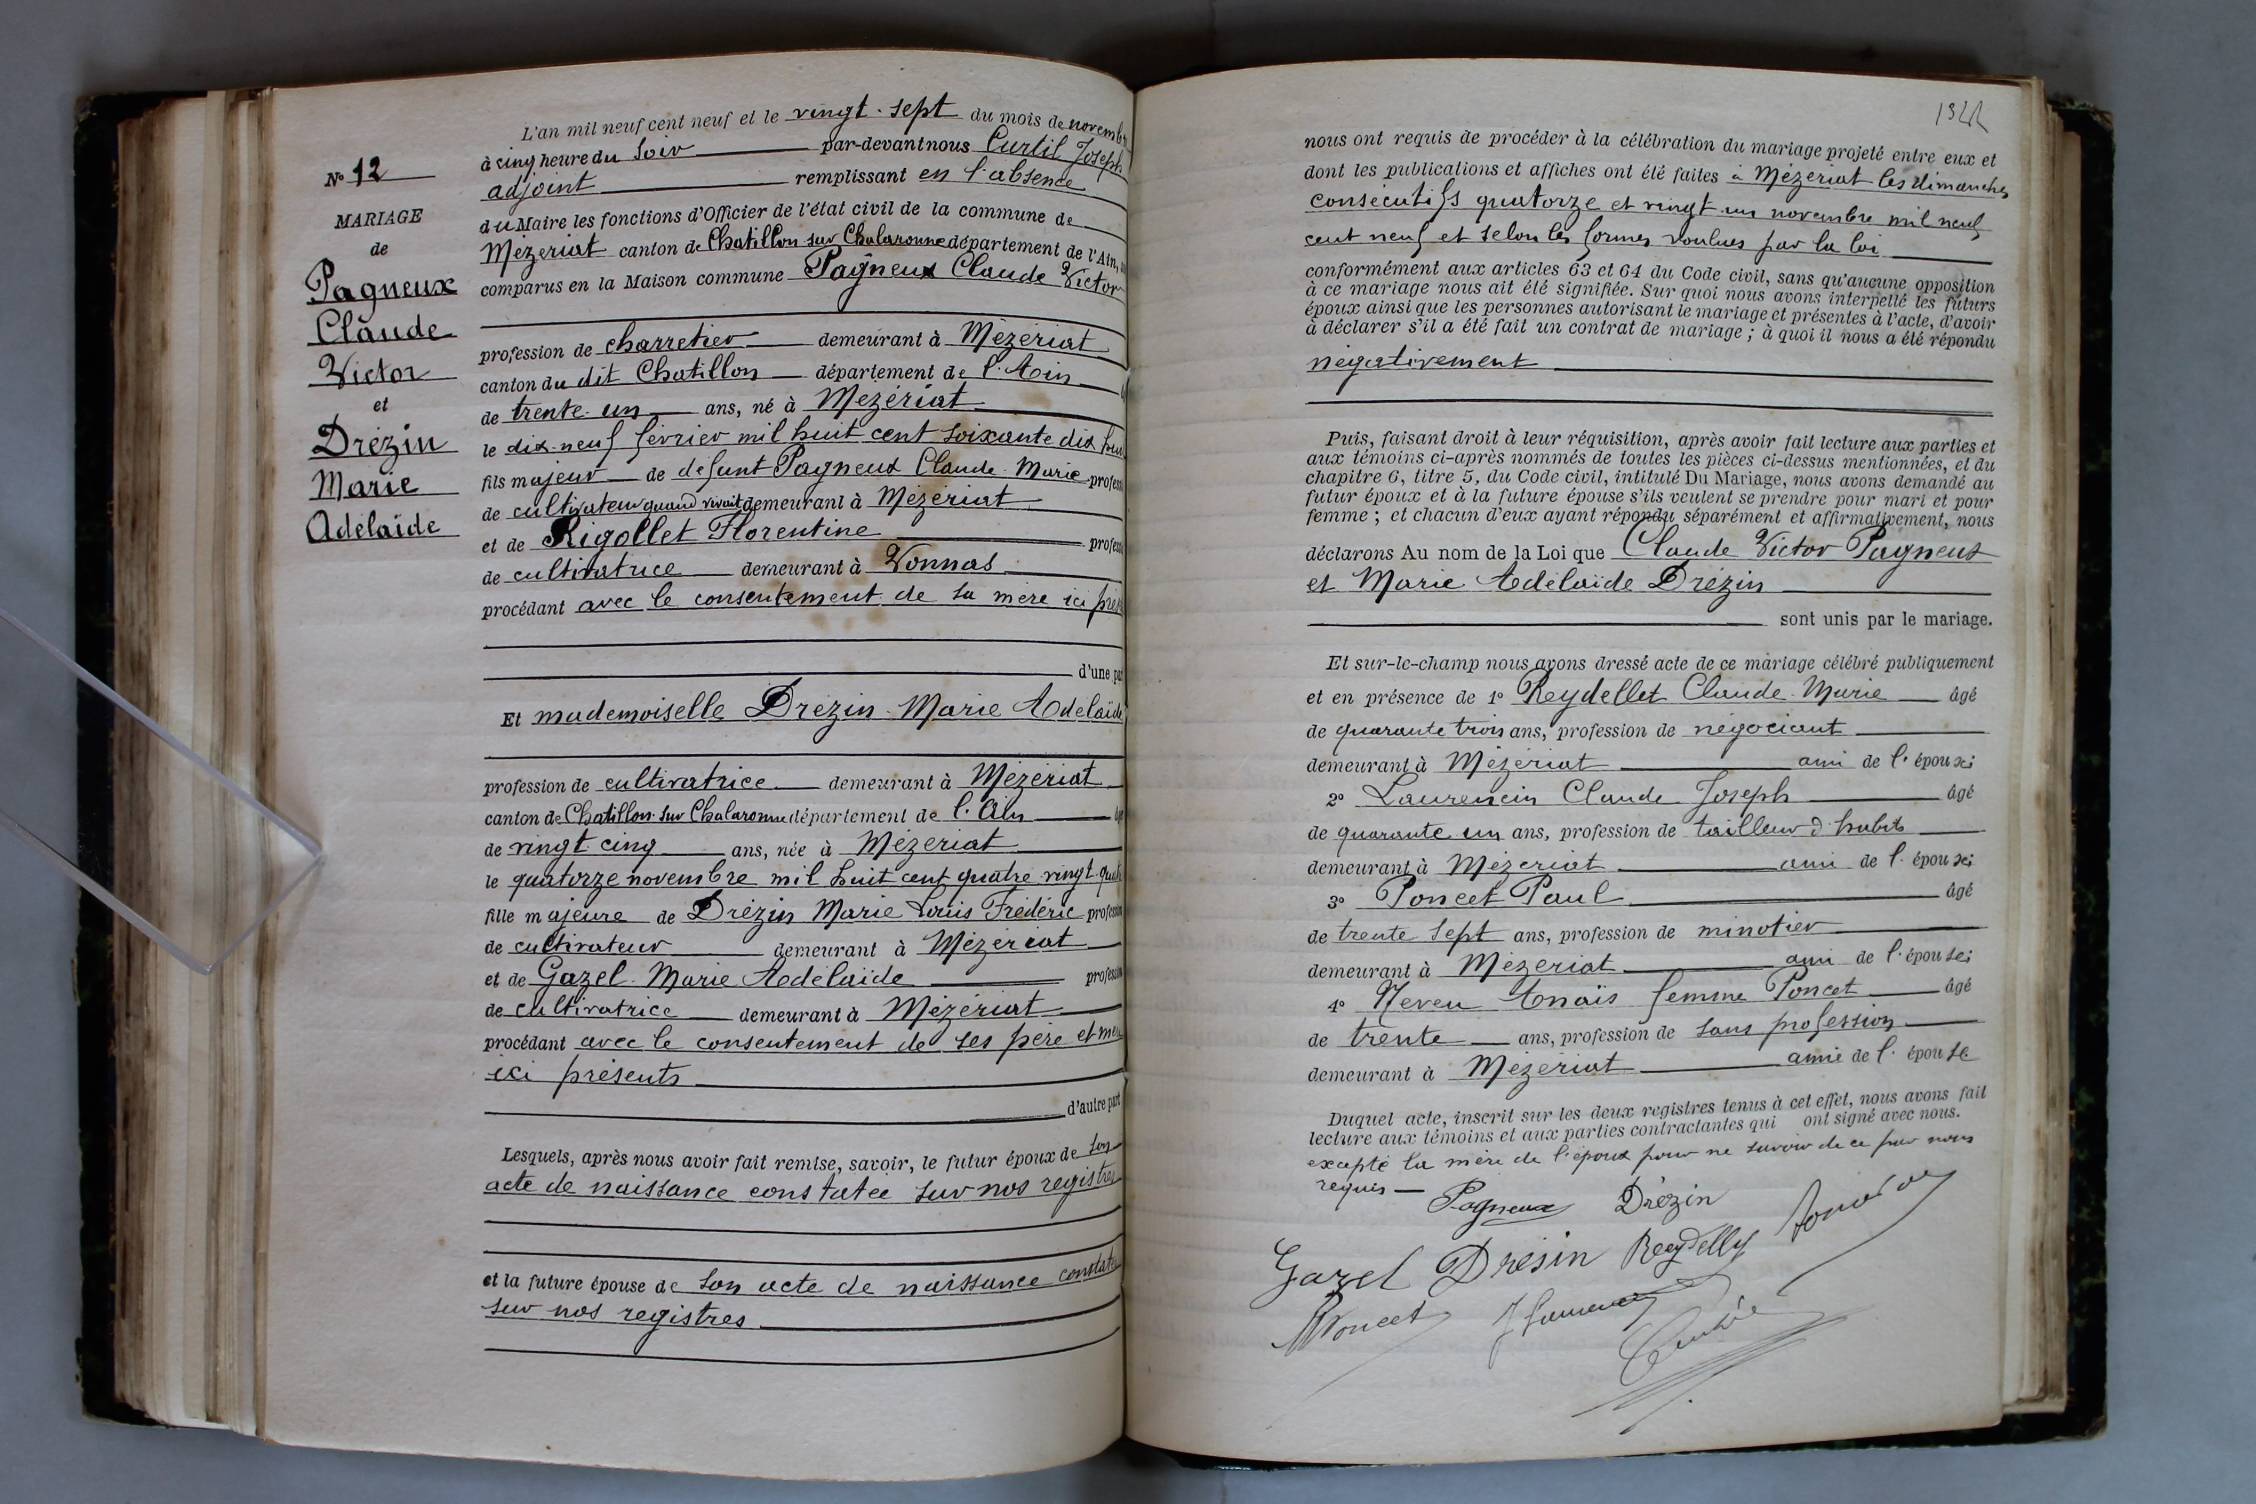 N° 12
MARIAGE
de
Pagneux
Claude
Victor
et
Drézin
Marie
Adélaïde
L'an mil neuf cent neuf et le vingt-sept du mois de novembre
à cinq heure du soir par-devant nous Curtil Joseph
adjoint remplissant en l'absence
du Maire les fonctions d'Officier de l'état civil de la commune de
Mézériat canton de Chatillon sur Chalaronne département de l'Ain,
comparus en la Maison commune Pagneux Claude Victor
profession de charretier demeurant à Mézériat
canton du dit Chatillon département de l'Ain
de trente-un ans, né à Mézériat
le dix-neuf février mil huit cent soixante dix huit
fils majeur de défunt Pagneux Claude-Marie profess
de cultivateur quand vivait demeurant à Mézériat
et de Rigollet Florentine profess
de cultivatrice demeurant à Vonnas
procédant avec le consentement de sa mère ici prés
d'une part
Et mademoiselle Drézin Marie Adélaïde
profession de cultivatrice demeurant à Mézériat
canton de Chatillon-sur Chalaronne département de l'Ain âgé
de vingt-cinq ans, née à Mézériat
le quatorze novembre mil huit cent quatre-vingt-quat
fille majeure de Drézin Marie Louis Frédéric profession
de cultivateur demeurant à Mézériat
et de Gazel Marie Adélaïde profession
de cultivatrice demeurant à Mézériat
procédant avec le consentement de ses père et mère
ici présents
d'autre part
Lesquels, après nous avoir fait remise, savoir, le futur époux de son
acte de naissance constatée sur nos registres
et la future épouse de son acte de naissance constatée
sur nos registres
nous ont requis de procéder à la célébration du mariage projeté entre eux et
dont les publications et affiches ont été faites à Mézériat les dimanches
consécutifs quatorze et vingt-un novembre mil neuf
cent neuf et selon les formes voulues par la loi
conformément aux articles 63 et 64 du Code civil, sans qu'aucune opposition
à ce mariage nous ait été signifiée. Sur quoi nous avons interpellé les futurs
époux ainsi que les personnes autorisant le mariage et présentes à l'acte, d'avoir
à déclarer s'il a été fait un contrat de mariage ; à quoi il nous a été répondu
négativement
Puis, faisant droit à leur réquisition, après avoir fait lecture aux parties et
aux témoins ci-après nommés de toutes les pièces ci-dessus mentionnées, et du
chapitre 6, titre 5, du Code civil, intitulé Du Mariage, nous avons demandé au
futur époux et à la future épouse s'ils veulent se prendre pour mari et pour
femme ; et chacun d'eux ayant répondu séparément et affirmativement, nous
déclarons Au nom de la Loi que Claude Victor Pagneux
et Marie Adélaïde Drézin
sont unis par le mariage.
Et sur-le-champ nous avons dressé acte de ce mariage célébré publiquement
et en présence de 1° Reydellet Claude-Marie âgé
de quarante trois ans, profession de négociant
demeurant à Mézériat ami de l'époux;
2° Laurencin Claude Joseph âgé
de quarante un ans, profession de tailleur d'habits
demeurant à Mézériat ami de l'époux;
3° Poncet Paul âgé
de trente sept ans, profession de minotier
demeurant à Mézériat ami de l'épouse;
4° Neveu Anaïs femme Poncet âgé
de trente ans, profession de sans profession
demeurant à Mézériat amie de l'épouse
Duquel acte, inscrit sur les deux registres tenus à cet effet, nous avons fait
lecture aux témoins et aux parties contractantes qui ont signé avec nous.
excepté la mère de l'époux pour ne savoir de ce par nous
requis
Pagneux Drézin
Gazel Drésin Reydellet
Poncet